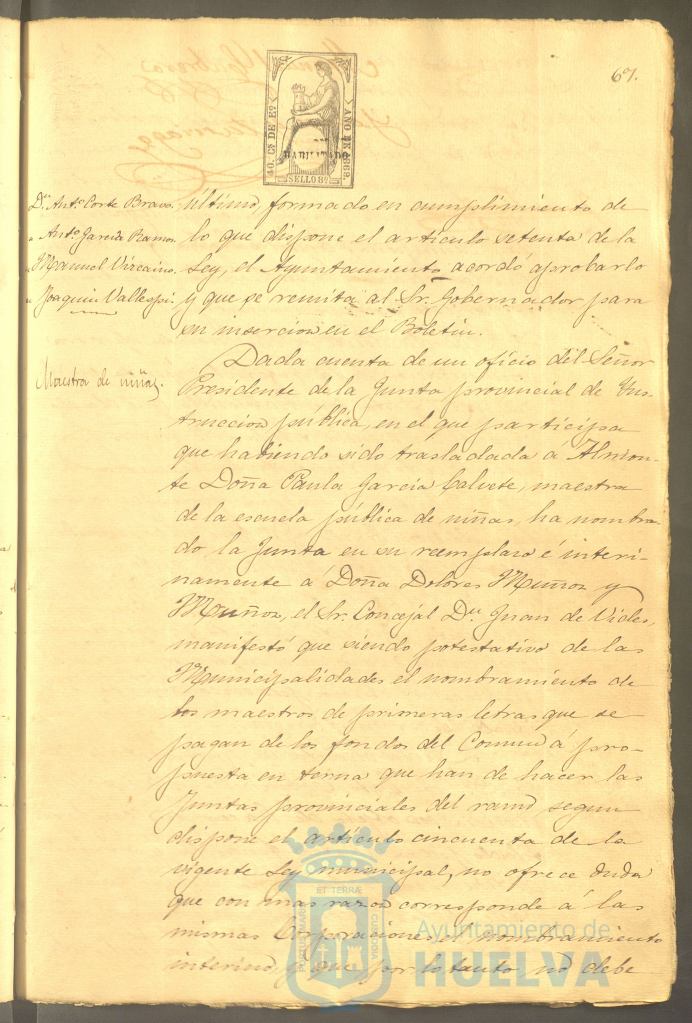 67.
40. Cs DE Eo
AÑO DE 1869.
HABILITADO
SELLO 8º
Dn. Antº. Corte Bravo.
" Antº. García Ramos.
" Manuel Vizcaino.
" Joaquin Vallespi.
último, formado en cumplimiento de
lo que dispone el articulo setenta de la
Ley, el Ayuntamiento acordó aprobarlo
y que se remita al Sr. Gobernador para
su insercion en el Boletin.
Maestra de niñas.
Dada cuenta de un oficio del Señor
Presidente de la Junta provincial de Ins-
truccion pública, en el que participa
que habiendo sido trasladada á Almon-
te Doña Paula García Calvete, maestra
de la escuela pública de niñas, ha nombra-
do la Junta en su reemplazo é interi-
namente á Doña Dolores Muñoz y
Muñoz, el Sr. Concejal Dn. Juan de Vides,
manifestó que siendo potestativo de las
Municipalidades el nombramiento de
los maestros de primeras letras que se
pagan de los fondos del Comun á pro-
puesta en terna que han de hacer las
Juntas provinciales del ramo segun
dispone el artículo cincuenta de la
vigente Ley municipal, no ofrece duda
que con mas razon corresponde á las
mismas Corporaciones el nombramiento
interino, y que por lo tanto no debe
PORTUS MARIS ET TERRÆ CUSTODIA
Ayuntamiento de
HUELVA